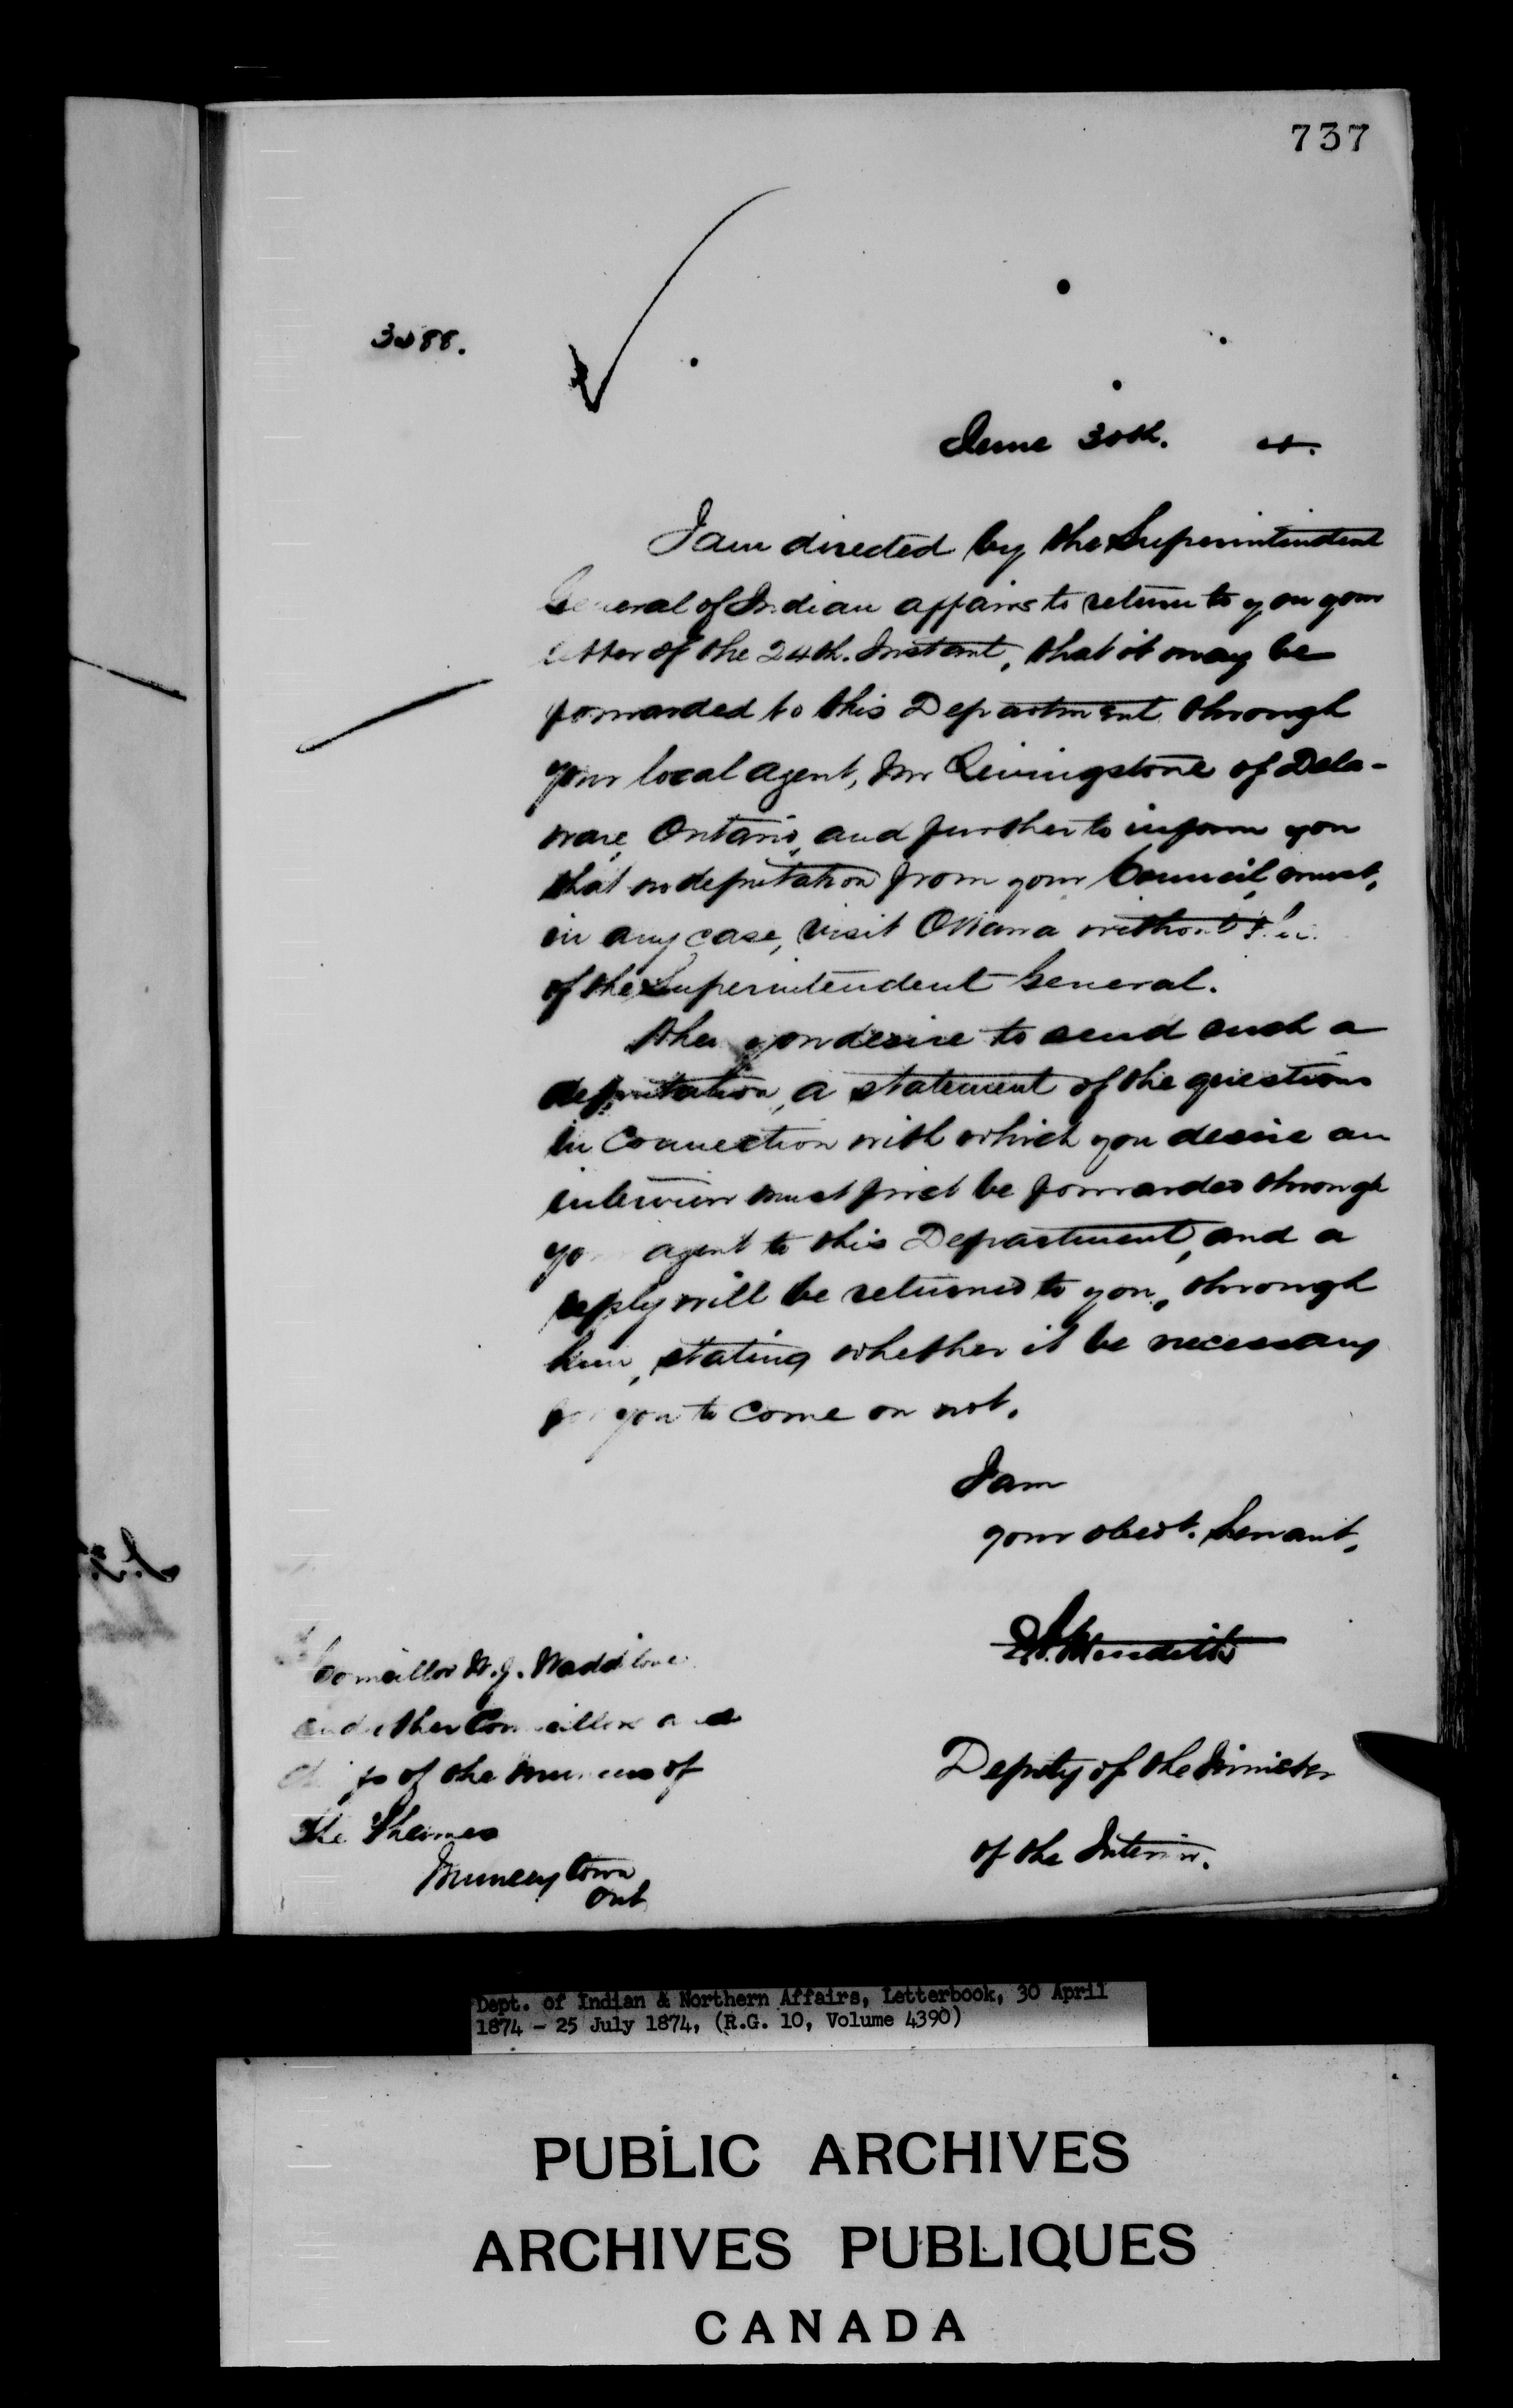 737
3088.
June 30th. 4.
I am directed by the Superintendent
General of Indian affairs to return to you your
letter of the 24th. Instant, that it may be
forwarded to this Department through
your local agent, Mr Livingstone of Dela-
ware, Ontario, and further to inform you
that no deputation from your Council, must,
in any case, visit Ottawa without
of the Superintendent General.
When you desire to send such a
deputation, a statement of the questions
in connection with which you desire an
interview must first be forwarded through
your agent to this Department, and a
reply will be returned to you, through
him, stating whether it be necessary
for you to come or not.
I am
your obedt. Servant,
E. A. Meredith
Councillor W. J. Waddilove
and other Councillors and
Chiefs of the Munceys of
the Thames
Munceytown
Ont
Deputy of the Minister
of the Interior.
Dept. of Indian & Northern Affairs, Letterbook, 30 April
1874 - 25 July 1874, (R.G. 10, Volume 4390)
PUBLIC ARCHIVES
ARCHIVES PUBLIQUES
CANADA